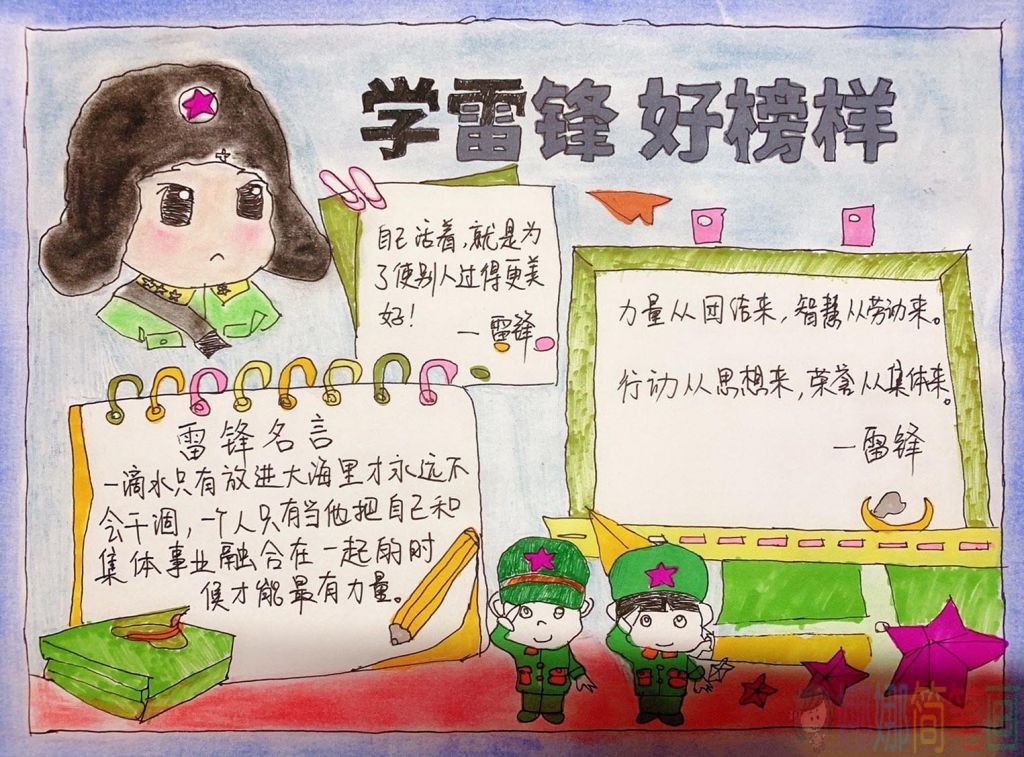 学雷锋 好榜样
自己活着,就是为
了使别人过得更美
好!
—雷锋
力量从团结来,智慧从劳动来。
行动从思想来,荣誉从集体来。
—雷锋
雷锋名言
一滴水只有放进大海里才永远不
会干涸,一个人只有当他把自己和
集体事业融合在一起的时
候才能最有力量。
娜简笔画